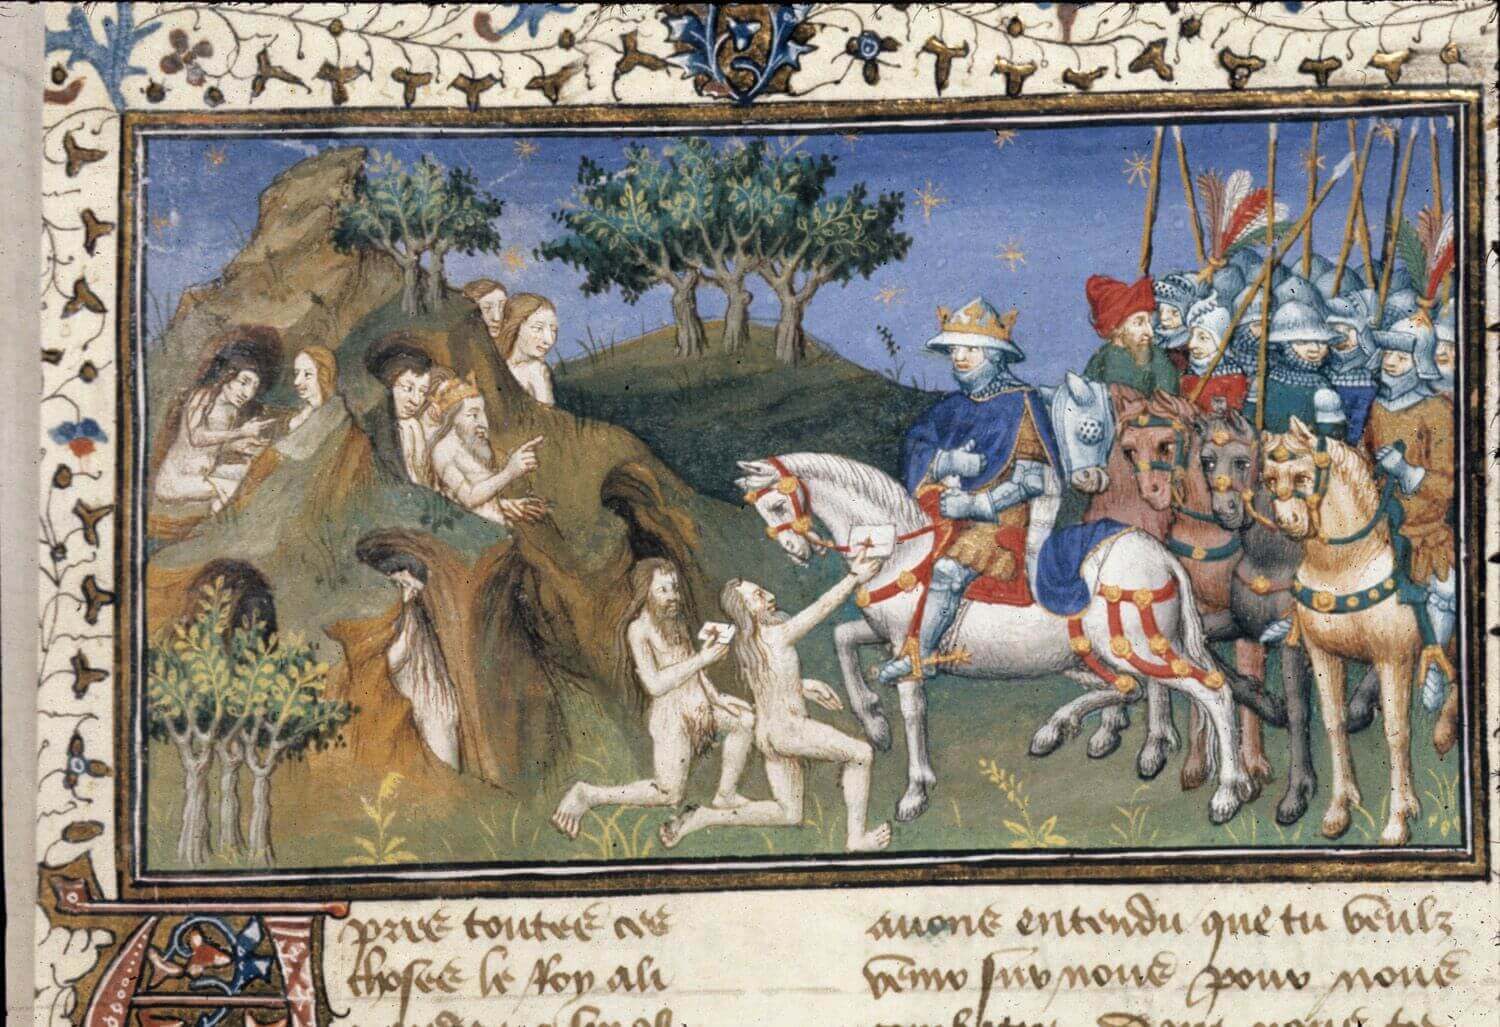 Apres toutes ces
choses le Roy ali
auons entendu que tu veulz
venir sur nous pour nous